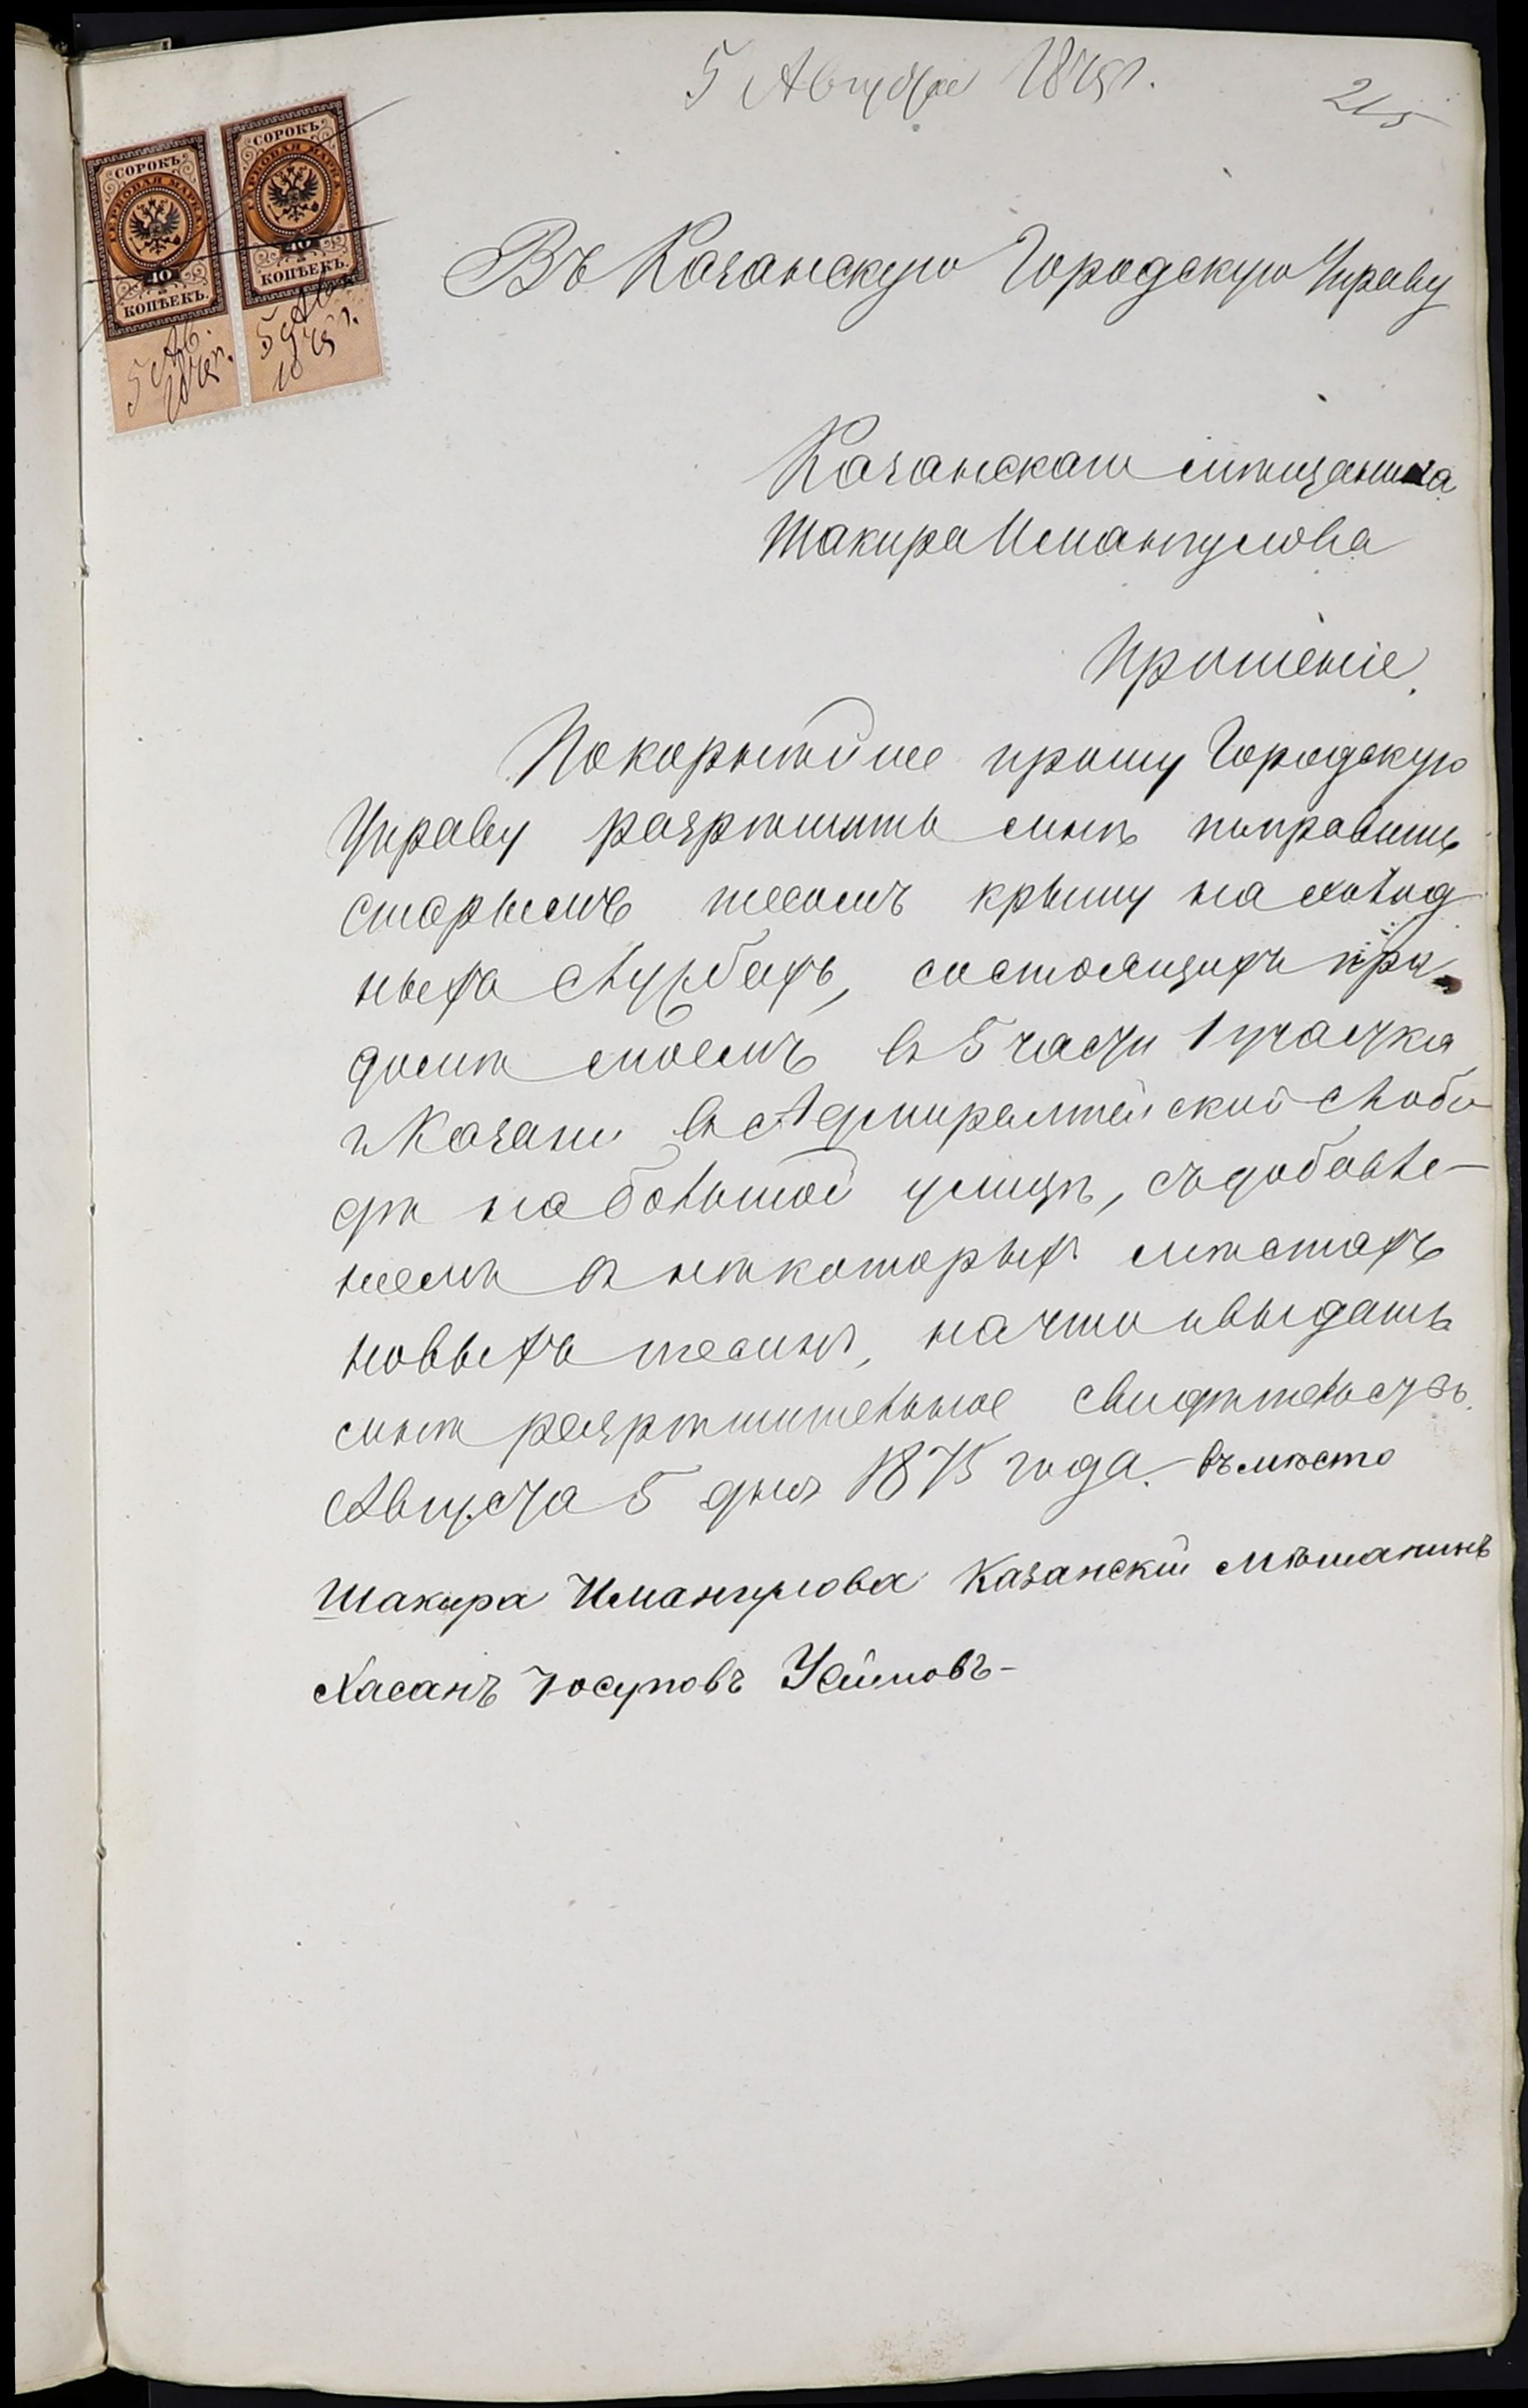 5 Августа 1875 г.
215
СОРОКЪ
ГЕРБОВАЯ МАРКА
40
КОПѢЕКЪ.
5 Ав.
1875 г.
СОРОКЪ
ГЕРБОВАЯ МАРКА
40
КОПѢЕКЪ.
5 Авг
1875 г.
Въ Казанскую Городскую Управу
Казанскаго мѣщанина
Шакира Имангулова
Прошеніе.
Покорнѣйше прошу Городскую
Управу разрѣшить мнѣ поправить
старымъ тесомъ крышу на холод
ныхъ службахъ, состоящихъ при
домѣ моемъ въ 5 части 1 участка
г. Казани въ Адмиралтейской слобо
дѣ на большой улицѣ, съ добавле-
ніемъ въ нѣкоторых мѣстахъ
новыхъ тесинъ, на что и выдать
мнѣ разрѣшительное свидѣтельство.
Августа 5 дня 1875 года. въмѣсто
Шакира Имангулова Казанскій мѣшанинъ
Хасанъ Юсуповъ